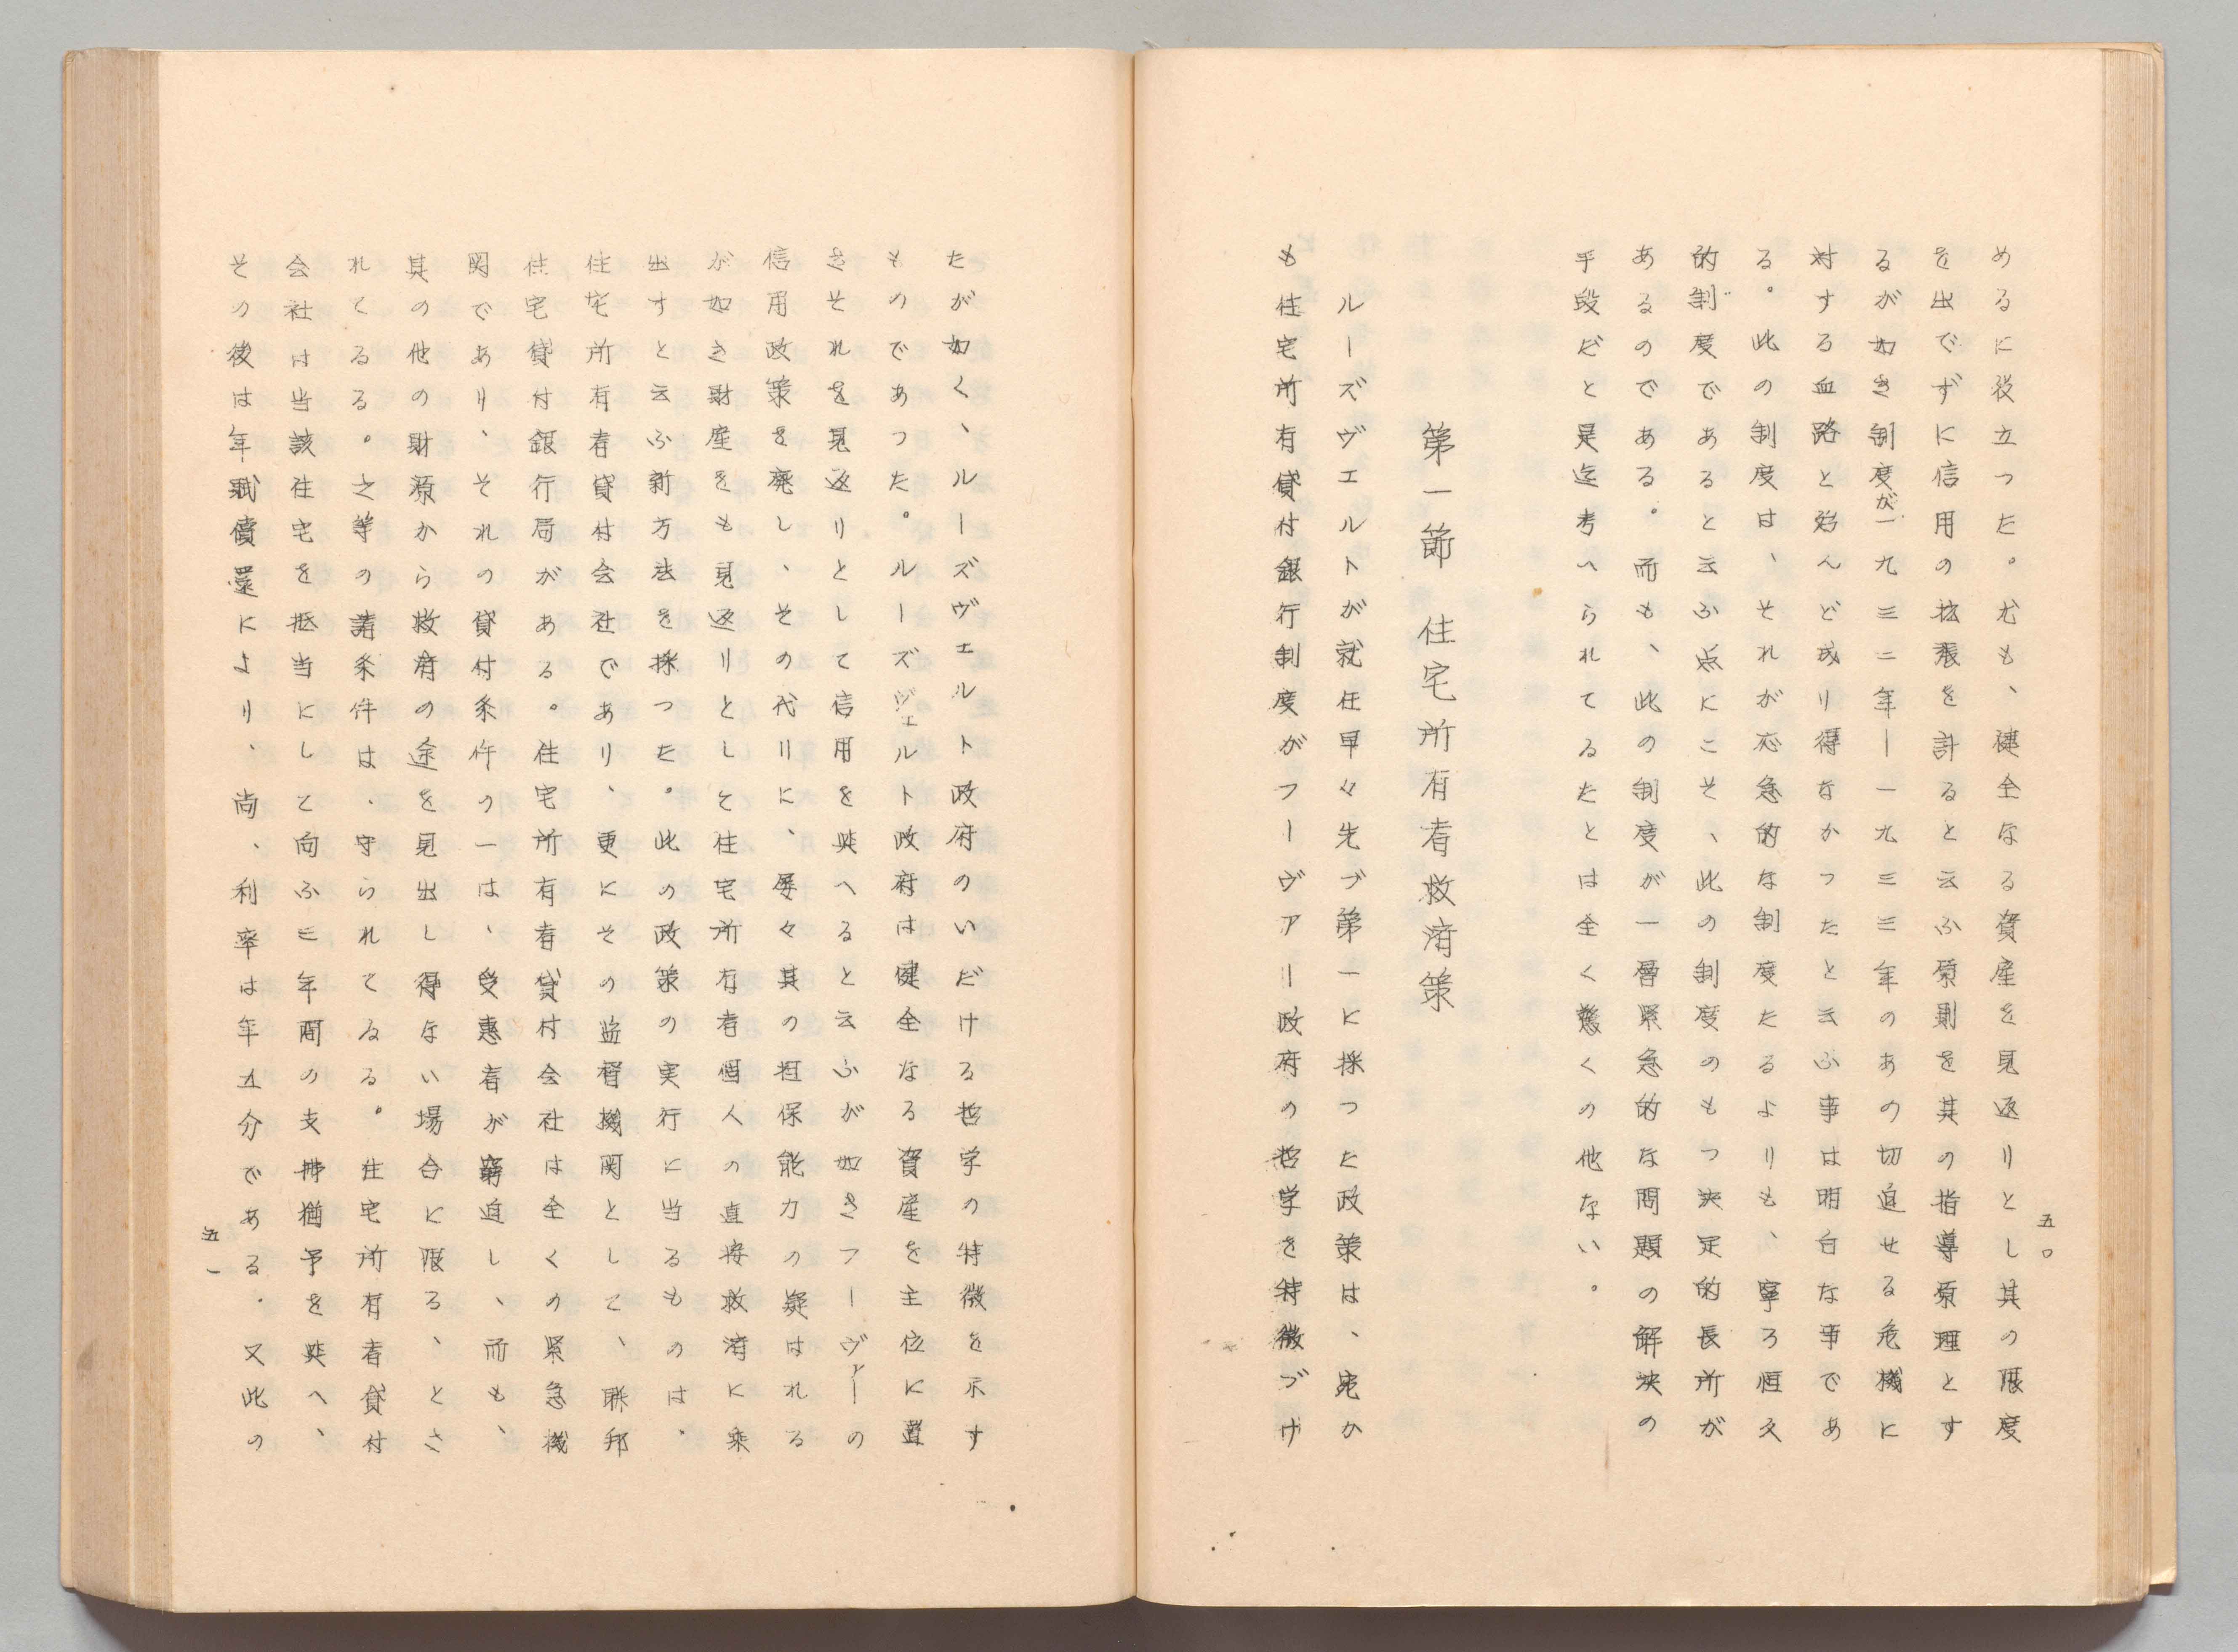 五〇
めるに役立つた。尤も、健全なる資産を見返りとし其の限度
を出でずに信用の拡張を計ると云ふ原則を其の指導原理とす
るが如き制度が一九三二年―一九三三年のあの切迫せる危機に
対する血路と殆んど成り得なかつたと云ふ事は明白な事であ
る。此の制度は、それが応急的な制度たるよりも、寧ろ恒久
的制度であると云ふ点にこそ、此の制度のもつ決定的長所が
あるのである。而も、此の制度が一層緊急的な問題の解決の
手段だと是迄考へられてゐたとは全く驚くの他ない。
第一節　住宅所有者救済策
ルーズヴェルトが就任早々先づ第一に採つた政策は、宛か
も住宅所有貸付銀行制度がフーヴァー政府の哲学を特徴づけ
たが如く、ルーズヴェルト政府のいだける哲学の特徴を示す
ものであつた。ルーズヴェルト政府は健全なる資産を主位に置
きそれを見返りとして信用を与へると云ふが如きフーヴァーの
信用政策を廃し、その代りに、屡々其の担保能力の疑はれる
が如き財産をも見返りとして住宅所有者個人の直接救済に乗
出すと云ふ新方法を採つた。此の政策の実行に当るものは、
住宅所有者貸付会社であり、更にその監督機関として、聯邦
住宅貸付銀行局がある。住宅所有者貸付会社は全くの緊急機
関であり、それの貸付条件の一は、受惠者が窮迫し、而も、
其の他の財源から救済の途を見出し得ない場合に限る、とさ
れてゐる。之等の諸条件は、守られてゐる。住宅所有者貸付
会社は当該住宅を抵当にして向ふ三年間の支拂猶予を与へ、
その後は年賦償還により、尚、利率は年五分である。又此の
五一